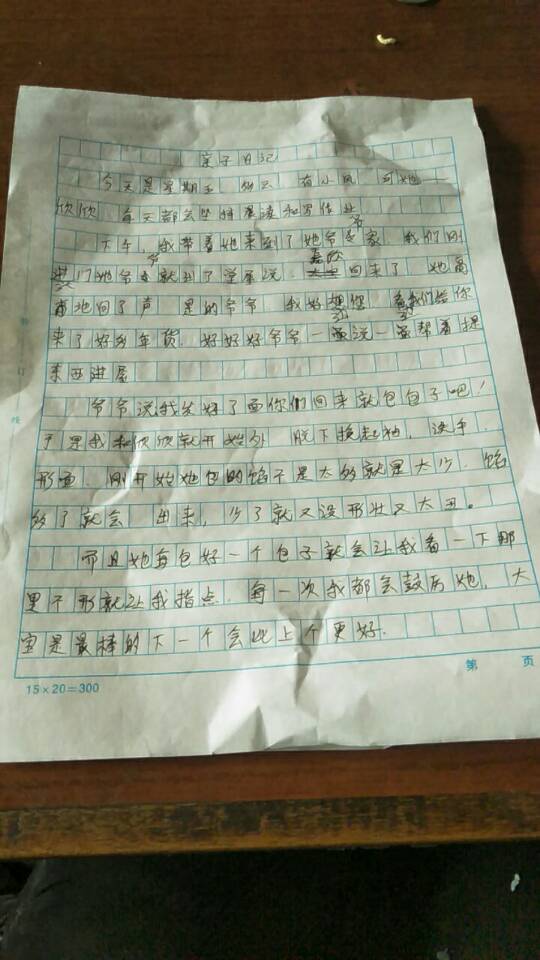 亲子日记
今天是星期五 多云 有小风 可她一
欣欣 每天都会坚持晨读和写作业
下午,我带着她来到了她爷爷家 我们刚
进门她爷爷就到了堂屋说 欣欣回来了 她高
高地回了声 是的爷爷 我好想您 看我们给你
来了好多年货 好好好爷爷一边说一边帮着提
东西进屋
爷爷说我发好了面你们回来就包包子吧!
于是我和欣欣就开始外 脱下挽起袖,洗手.
和面.刚开始她包的馅不是太多就是太少.馅
多了就会 出来,少了就又没形状又太丑。
而且她每包好一个包子就会让我看一下那
里不形就让我指点.每一次我都会鼓厉她,大
宝是最棒的下一个会比上个更好.
第 页
15×20=300